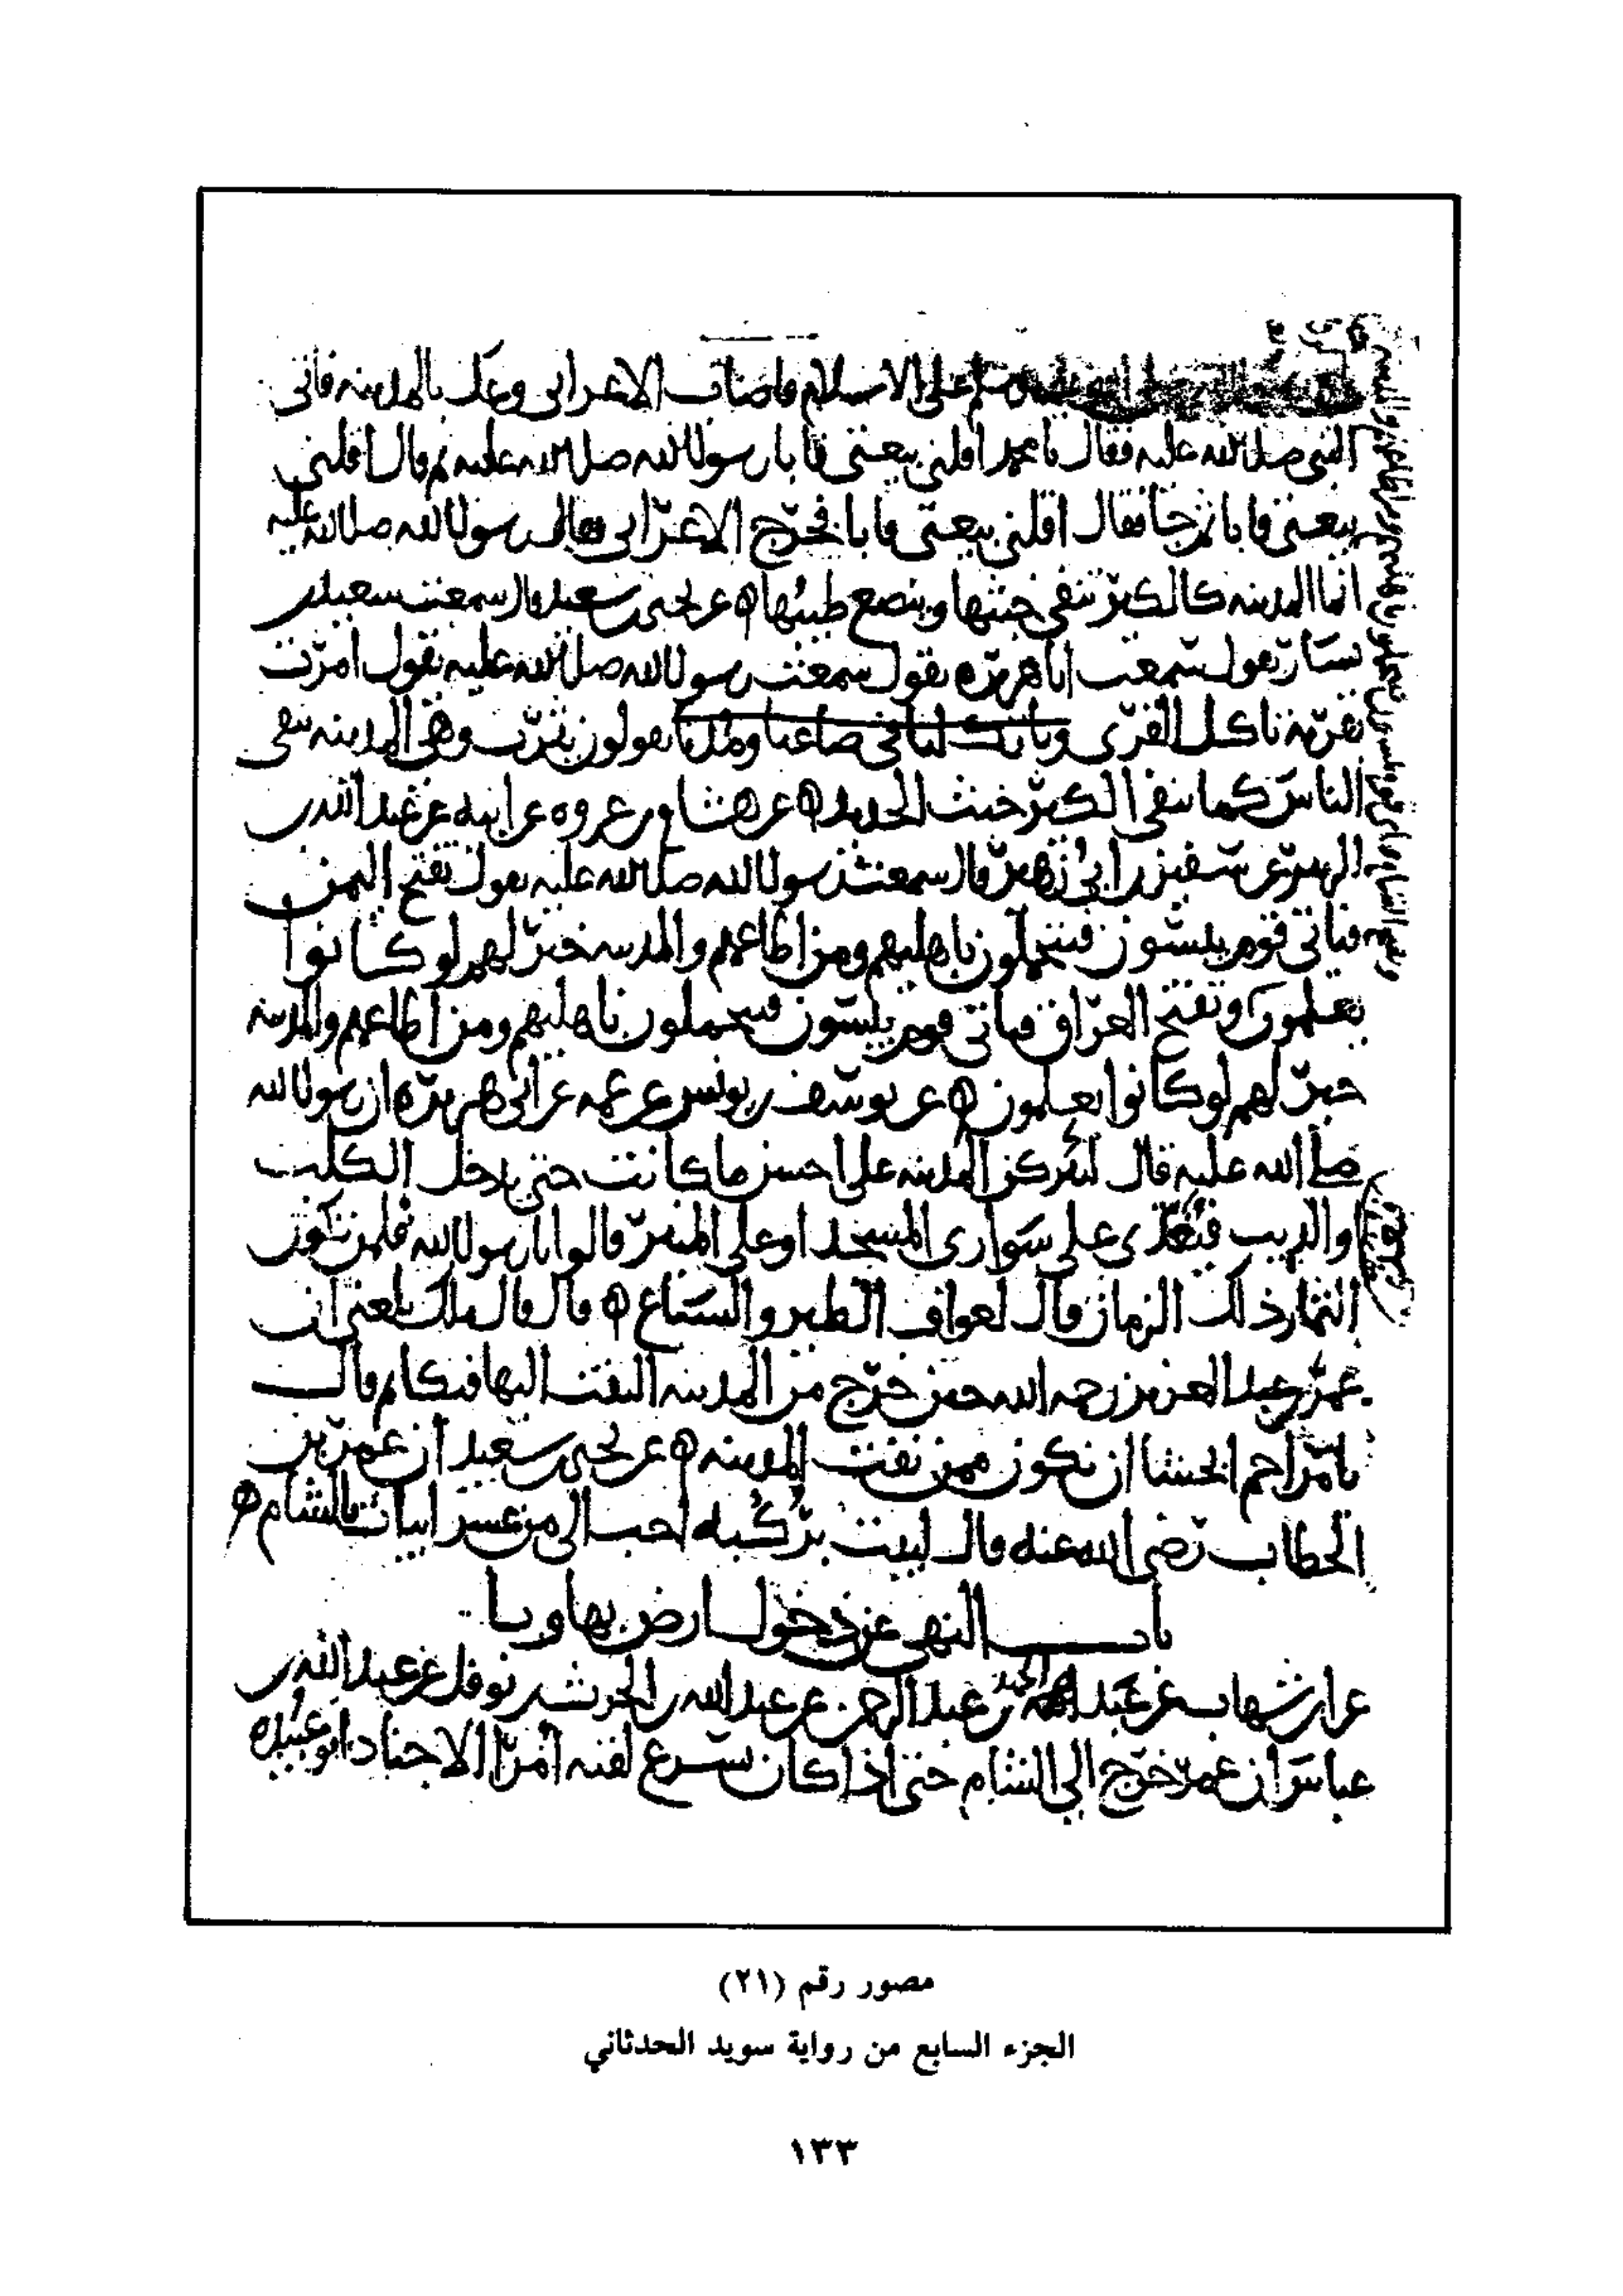 وسلم على الاسلام فاصاب الاعرابي وعك بالمدينه فاتى
النبي صلى الله عليه فقال يا محمد اقلني بيعتي فابا رسول الله صلى الله عليه ثم قال اقلني
بيعتي فابا ثم جا فقال اقلني بيعتي فابا فخرج الاعرابي فقال رسول الله صلى الله عليه
انما المدينه كالكير تنفي خبثها وينصع طيبها عن يحيى بن سعيد قال سمعت سعيد بن
يسار يقول سمعت ابا هريره يقول سمعت رسول الله صلى الله عليه يقول امرت
بقرية تاكل القرى وبارك لنا في صاعنا ومدنا يقولون يثرب وهي المدينه تنفي
الناس كما ينفي الكير خبث الحديد عن هشام بن عروه عن ابيه عن عبد الله بن
الزبير عن سفين بن ابي زهير قال سمعت رسول الله صلى الله عليه يقول تفتح اليمن
فياتي قوم يبسون فيتحملون باهليهم ومن اطاعهم والمدينه خير لهم لو كانوا
يعلمون وتفتح العراق فياتي قوم يبسون فيتحملون باهليهم ومن اطاعهم والمدينه
خير لهم لو كانوا يعلمون عن يوسف بن يونس عن عمه عن ابي هريره ان رسول الله
صلى الله عليه قال لتتركن المدينه على احسن ما كانت حتى يدخل الكلب
او الذيب فيغذي على سواري المسجد او على المنبر قالوا يا رسول الله فلمن تكون
الثمار ذلك الزمان قال لعوافي الطير والسباع قال قال ملك بلغني ان
عمر بن عبد العزيز رحمه الله حين خرج من المدينه التفت اليها فبكا ثم قال
يا مزاحم اتخشا ان نكون ممن نفت المدينه عن يحيى بن سعيد ان عمر بن
الخطاب رضي الله عنه قال لبيت بركبه احب الي من عشر ابيات بالشام
باب النهي عن دخول ارض بها وبا
عن ابن شهاب عن عبد الحميد بن عبد الرحمن عن عبد الله بن الحرث بن نوفل عن عبد الله بن
عباس ان عمر خرج الى الشام حتى اذا كان بسرغ لقيه امرا الاجناد ابو عبيده
مصور رقم (٢١)
الجزء السابع من رواية سويد الحدثاني
١٣٣